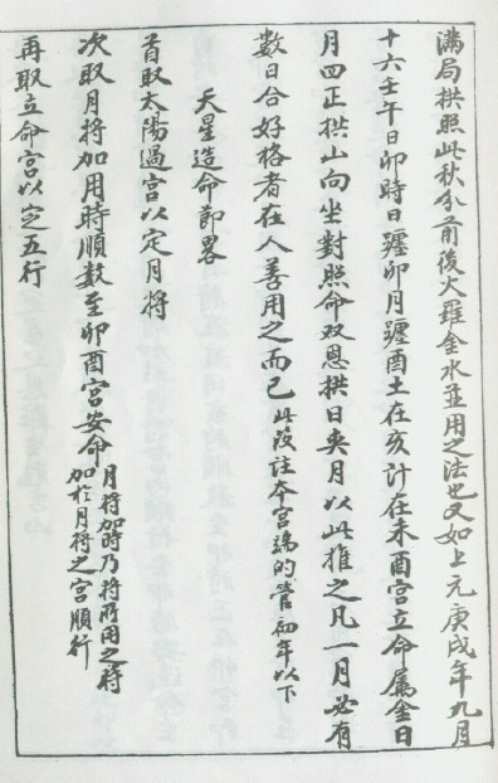 滿局拱照此秋分前後火羅金水並用之法也又如上元庚戌年九月
十六壬午日卯時日躔卯月躔酉土在亥計在未酉宮立命屬金日
月四正拱山向坐對照命双恩拱日夾月以此推之凡一月必有
數日合好格者在人善用之而已此段註本宮端的管初年以下
天星造命節畧
首取太陽過宮以定月將
次取月將加用時順數至卯酉宮安命月將加時乃將所用之時
加於月將之宮順行
再取立命宮以定五行